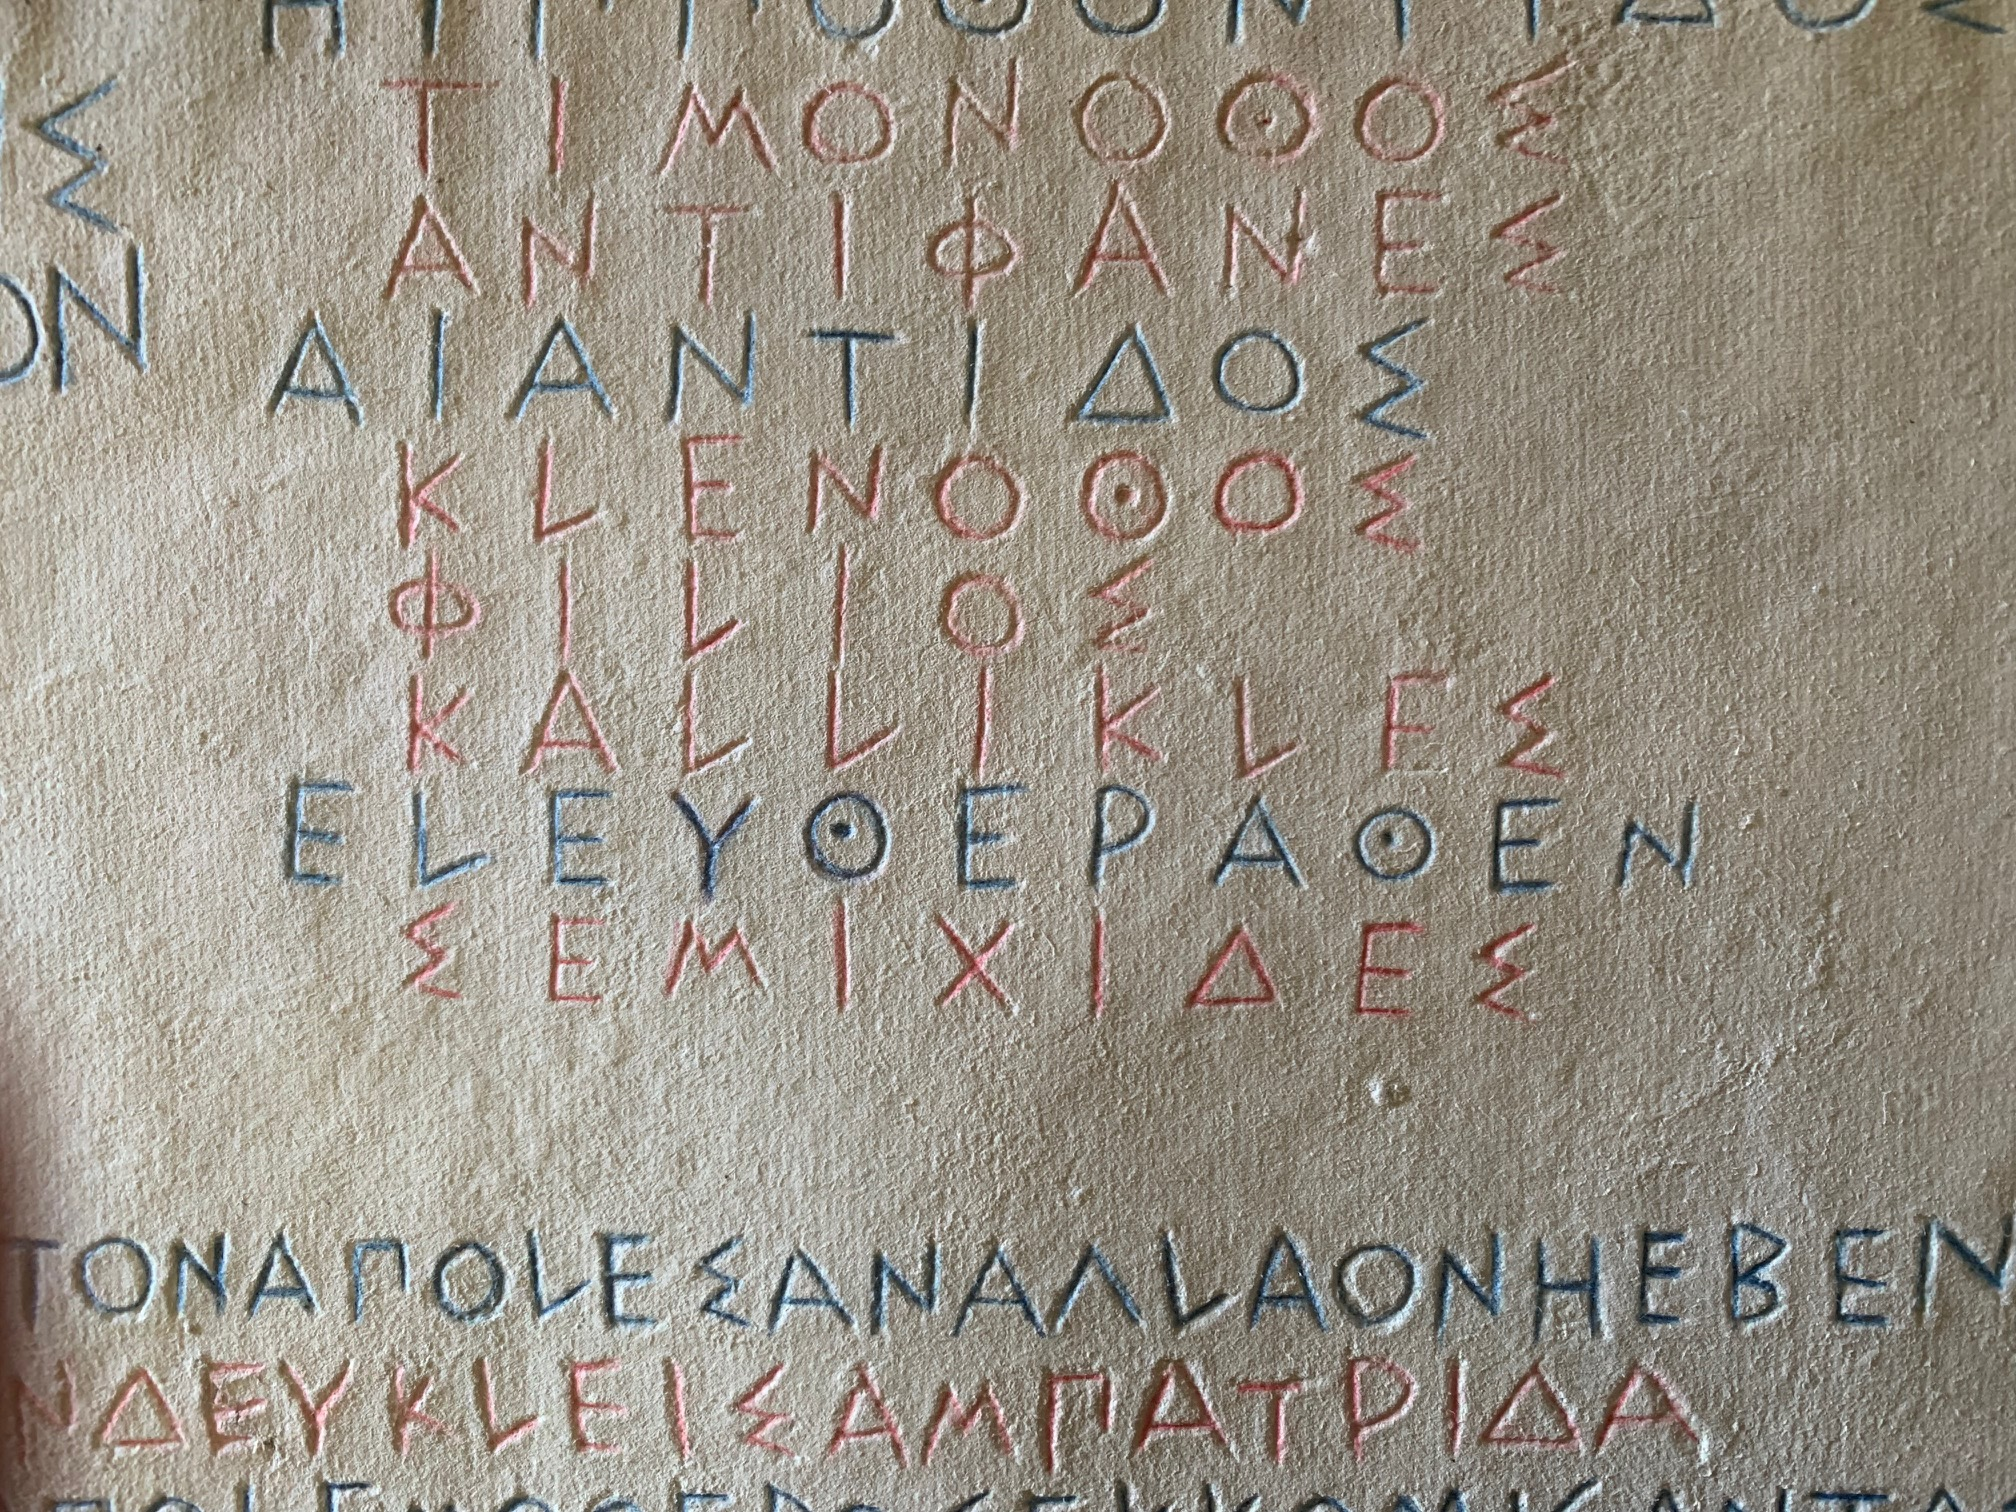 ΗΙΠΠΟΘΟΝΤΙΔΟΣ
ΤΙΜΟΝΟΘΟΣ
ΑΝΤΙΦΑΝΕΣ
ΑΙΑΝΤΙΔΟΣ
ΚLΕΝΟΘΟΣ
ΦΙLΙΟΣ
ΚΑLLΙΚLΕΣ
ΕLΕΥΘΕΡΑΘΕΝ
ΣΕΜΙΧΙΔΕΣ
ΤΟΝΑΠΟLΕΣΑΝΑΛLΑΟΝΗΕΒΕΝ
ΝΔΕΥΚLΕΙΣΑΜΠΑΤΡΙΔΑ